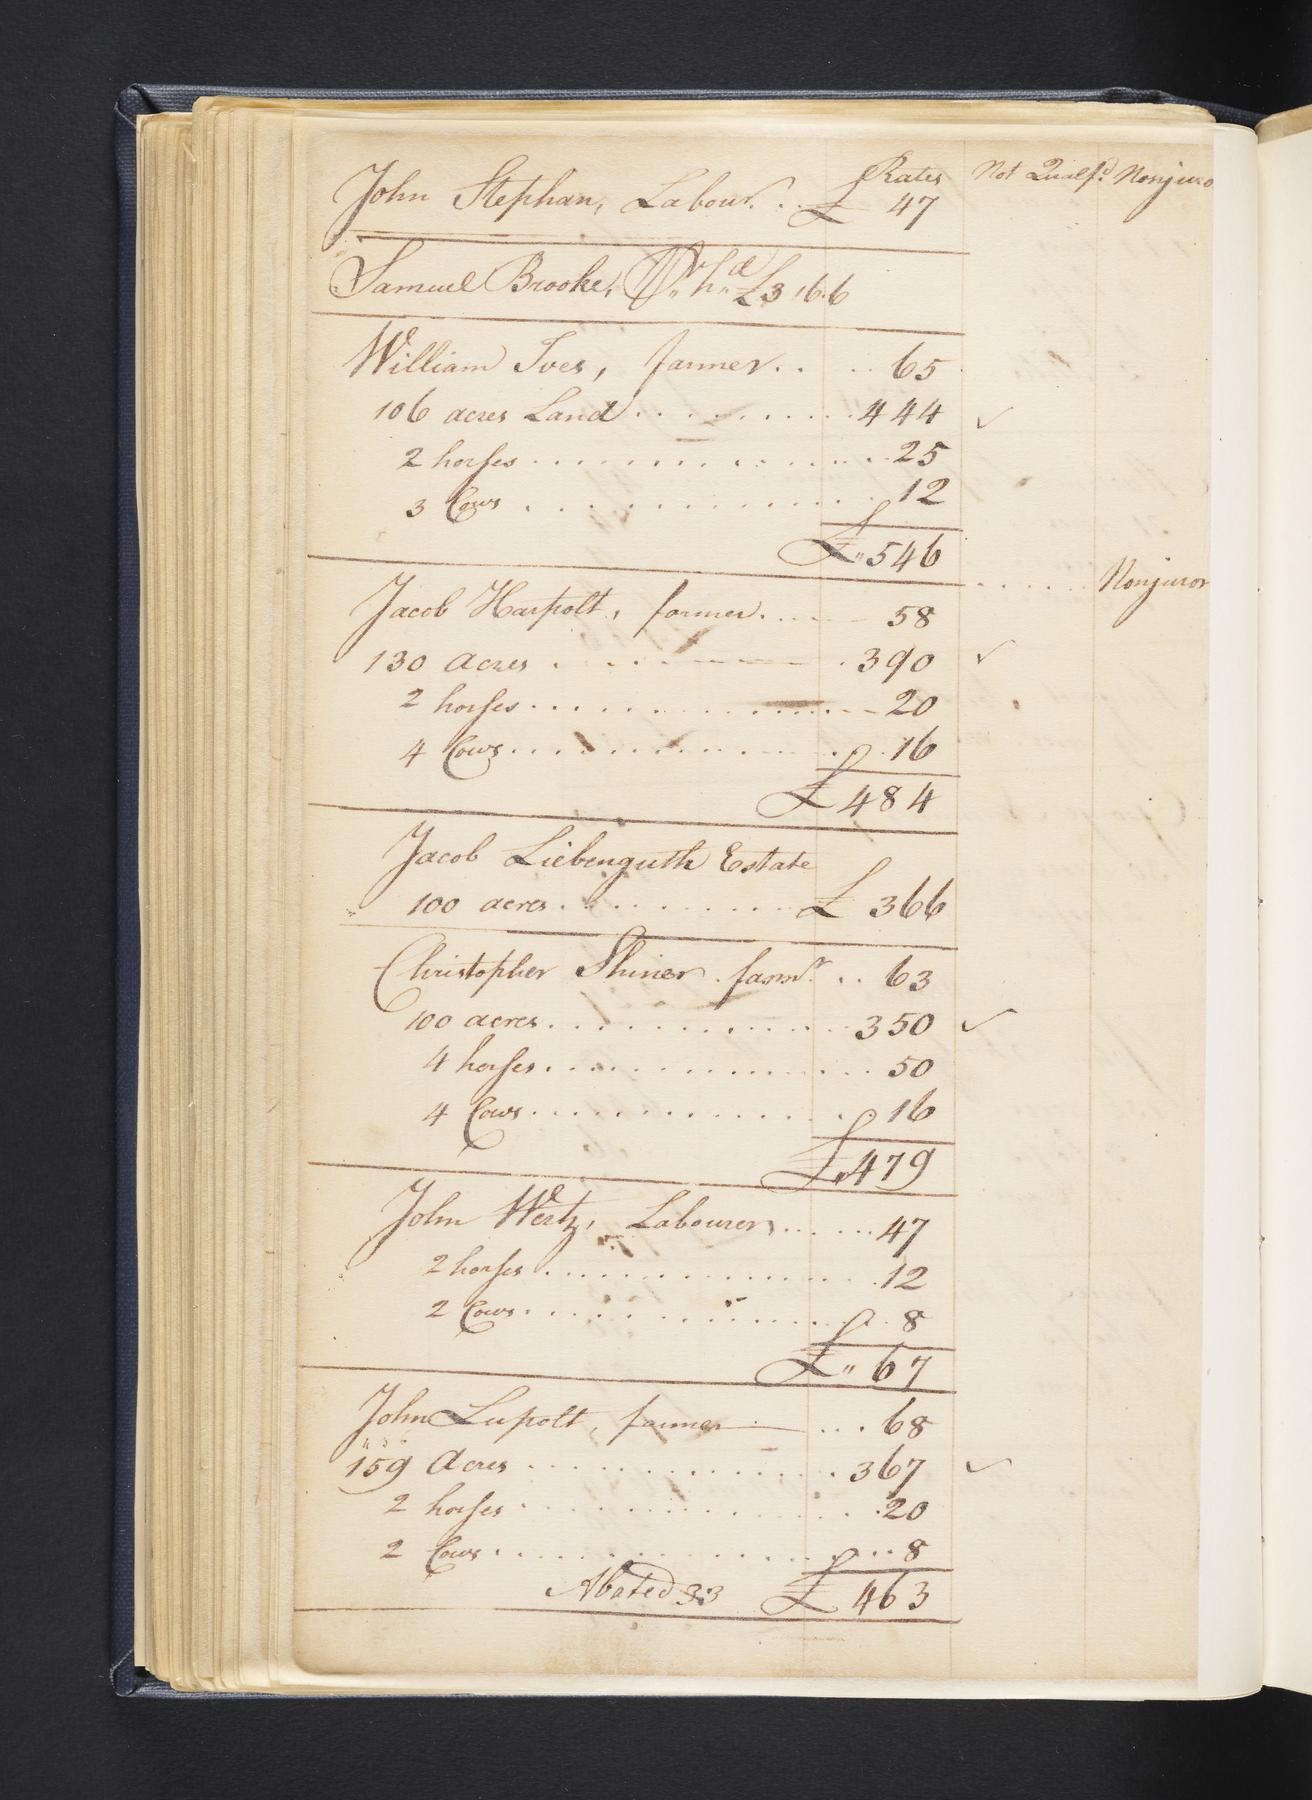 Rates Not Qualfd. Nonjuro
John Stephan, Labour. . . £ 47
Samuel Brooke, £3 16.6
William Ives, farmer. . . . 65
106 acres Land . . . . . . . . . . 444 ✓
2 horses . . . . . . . . . . . . . . 25
3 Cows . . . . . . . . . . . . . 12
£ 546
Jacob Harpolt, farmer. . . . 58 . . . . . . Nonjuror
130 acres . . . . . . . . . 390 ✓
2 horses . . . . . . . . . . . . . 20
4 Cows . . . . . . . . . . . . . 16
£ 484
Jacob Liebenguth Estate
100 acres . . . . . . . . . £ 366
Christopher Shiner. farmr. . . 63
100 acres . . . . . . . . . . . . 350 ✓
4 horses . . . . . . . . . . . . . . 50
4 Cows . . . . . . . . . . . . . 16
£ 479
John Wertz, Labourer . . . . . 47
2 horses . . . . . . . . . . . . . . 12
2 Cows . . . . . . . . . . . . . . 8
£ " 67
John Lupolt, farmer . . . 68
159 Acres . . . . . . . . . . . . . 367 ✓
2 horses . . . . . . . . . . . . . . 20
2 Cows . . . . . . . . . . . . . . 8
Abated 33 £ 463